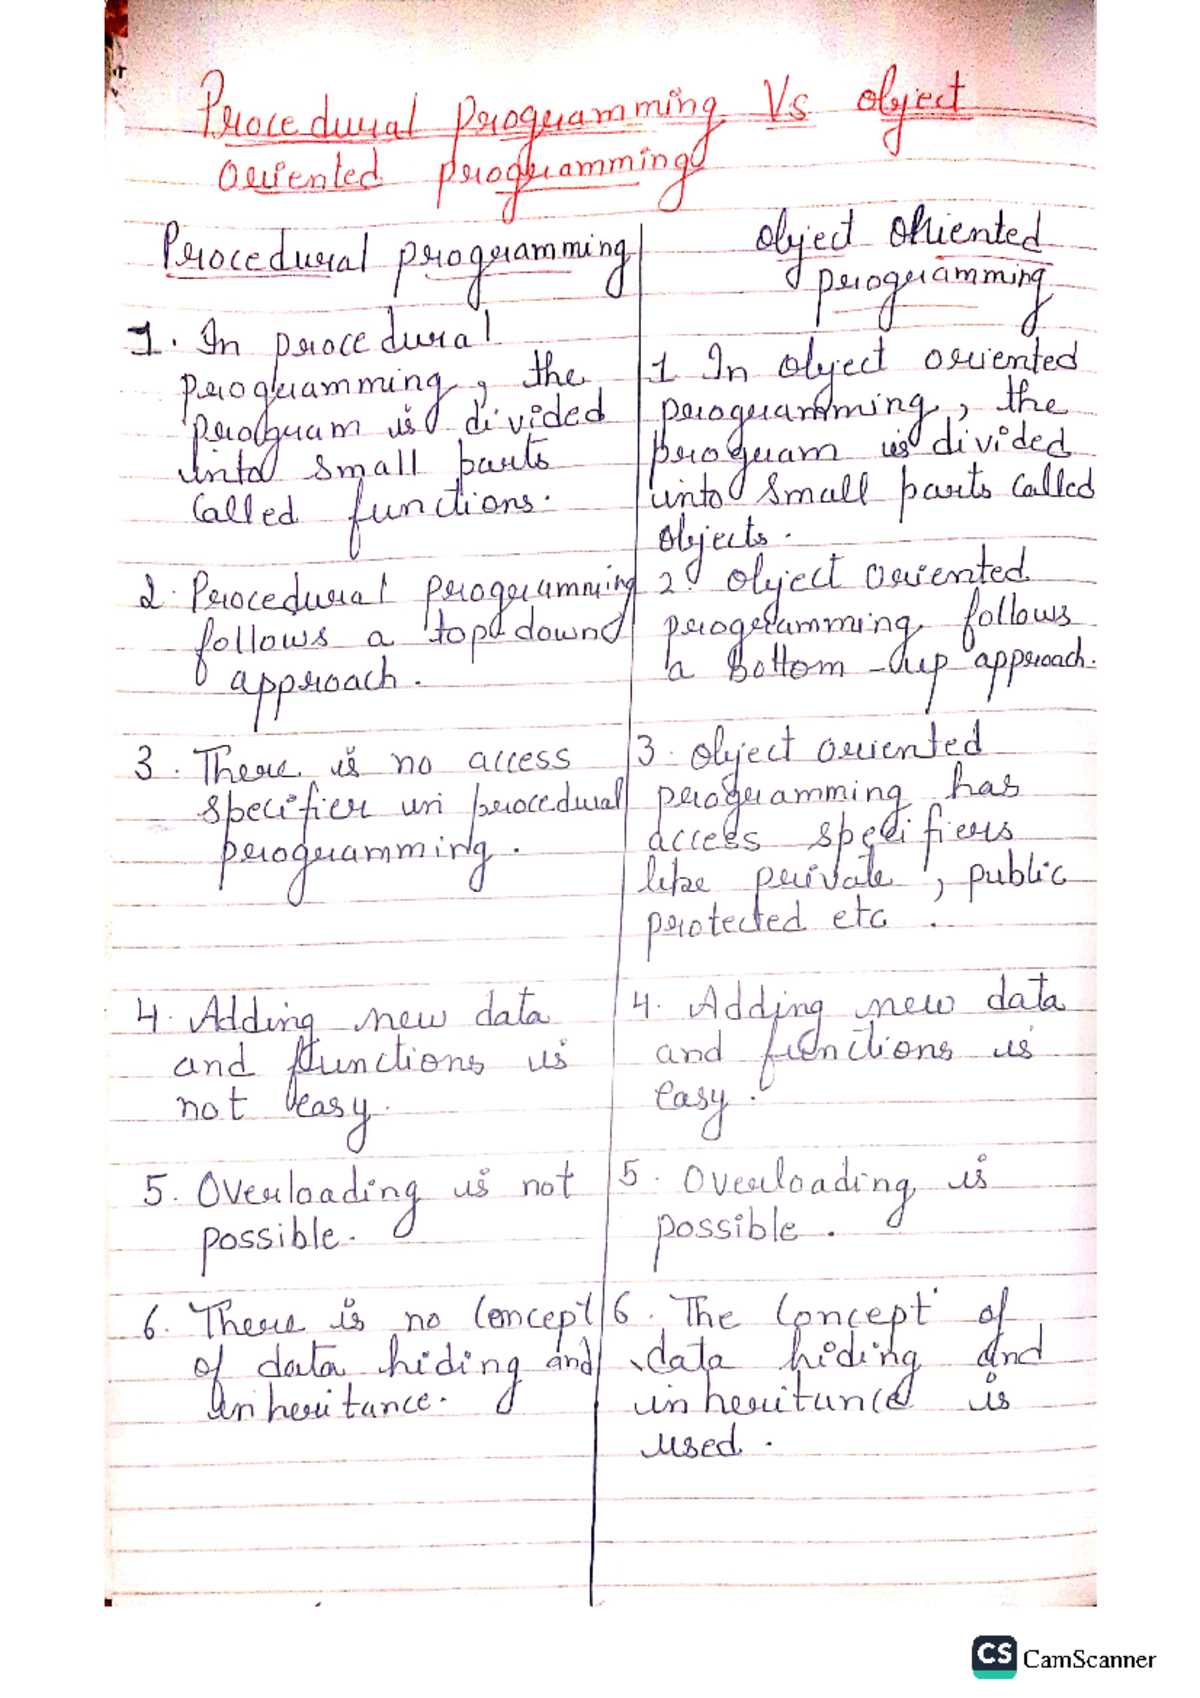 Procedural programming Vs object
oriented programming
Procedural programming
1. In procedural
programming, the
program is divided
into small parts
called functions.
2. Procedural programming
follows a top down
approach.
3. There is no access
specifier in procedural
programming.
4. Adding new data
and functions is
not easy.
5. Overloading is not
possible.
6. There is no concept
of data hiding and
inheritance.
object oriented
programming
1 In object oriented
programming, the
program is divided
into small parts called
objects.
2. object oriented
programming follows
a Bottom-up approach.
3. object oriented
programming has
access specifiers
like private, public
protected etc.
4. Adding new data
and functions is
easy.
5. Overloading is
possible.
6. The concept of
data hiding and
inheritance is
used.
CS CamScanner